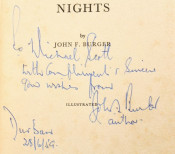 NIGHTS
by
JOHN F. BURGER
To Michael Scott
with compliments & Sincere
good wishes from
ILLUSTRATED
John F Burger
author.
Durban
28/6/49.